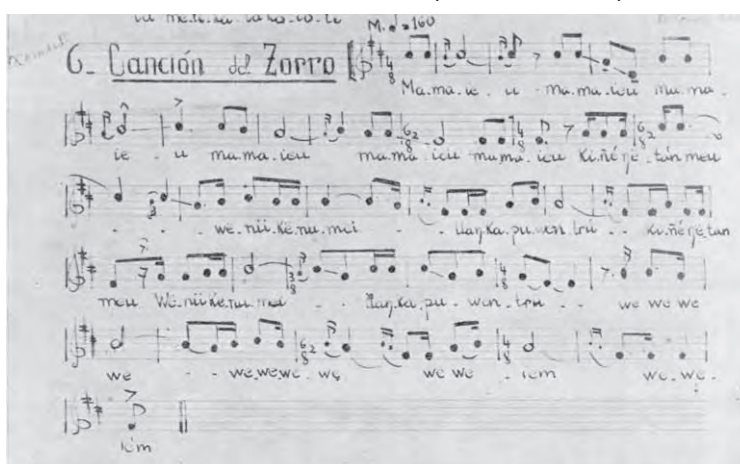 M. ♩=160
6_ Canción del Zorro
Ma.ma.ie. u - ma.ma.ieü ma.ma.
ie - u ma.ma.ieu ma.ma.ieu ma.ma.ieu Ki.ñé.ŋe.tán meu
- - - we.nü.ke.nu.mei - - llaŋ.ka.pu.wen.tru - - Ki.ñé.ŋe.tan
meu We.nü.ke.nu.mei - - llaŋ.ka.pu.wen.tru - - we we we
we - - we.we.we.we we we - iem we.we.
iém